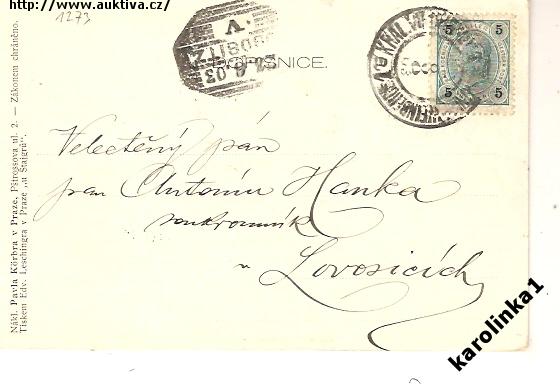 http://www.auktiva.cz/
1273
DOPISNICE.
V.
6.03
5 5
5 5
Velectěný pán
pan Antonín Hanka
soukromník
v Lovosicích
Nákl. Pavla Körbra v Praze, Pštrossova ul. 2. — Zákonem chráněno.
Tiskem Edv. Leschingra v Praze „u Štajgrů".
karolinka1